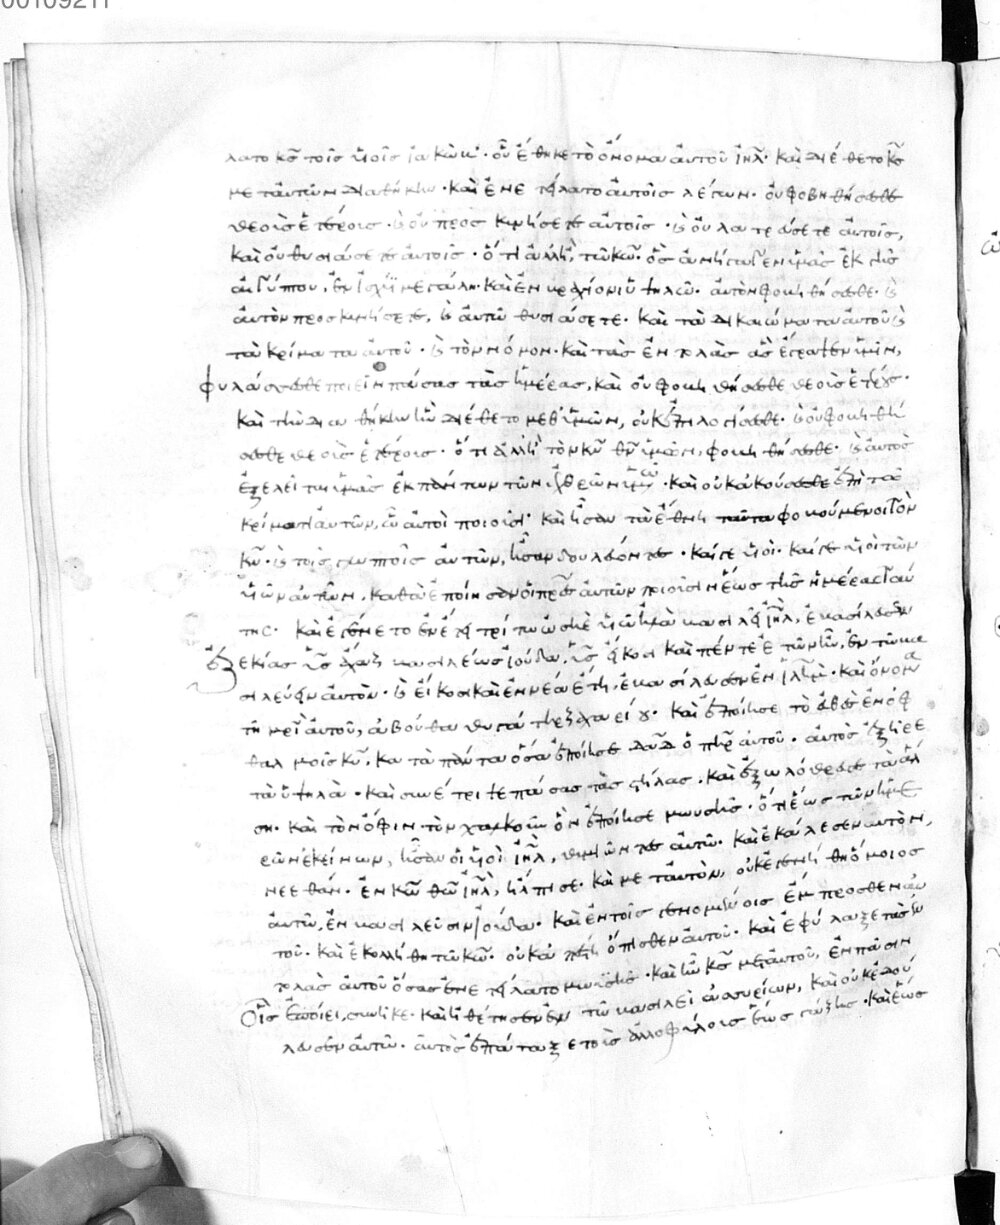 00109211
λατο κς τοῖς υἱοῖς ἰακὼβ· οὗ ἔθηκε τὸ ὄνομα αὐτοῦ ιηλ· καὶ διέθετο κς
μετ' αὐτῶν διαθήκην· καὶ ἐνετείλατο αὐτοῖς λέγων· οὐ φοβηθήσεσθε
θεοὺς ἑτέρους· καὶ οὐ προσκυνήσετε αὐτοῖς· καὶ οὐ λατρεύσετε αὐτοῖς,
καὶ οὐ θυσιάσετε αὐτοῖς· ὅτι ἀλλ' ἢ τῶ κω· ὃς ἀνήγαγεν ὑμᾶς ἐκ γῆς
αἰγύπτου, ἐν ἰσχύϊ μεγάλη· καὶ ἐν βραχίονι ὑψηλῶ· αὐτὸν φοβηθήσεσθε· καὶ
αὐτὸν προσκυνήσετε, καὶ αὐτῶ θυσιάσετε· καὶ τὰ δικαιώματα αὐτοῦ καὶ
τὰ κρίματα αὐτοῦ· καὶ τὸν νόμον· καὶ τὰς ἐντολὰς ἃς ἔγραψεν ὑμῖν,
φυλάσσεσθε ποιεῖν πάσας τὰς ἡμέρας, καὶ οὐ φοβηθήσεσθε θεοὺς ἑτέρους·
καὶ τὴν διαθήκην ἣν διέθετο μεθ' ὑμῶν, οὐκ ἐπιλήσεσθε· καὶ οὐ φοβηθή
σεσθε θεοὺς ἑτέρους· ὅτι ἀλλ' ἢ τὸν κν θν ὑμῶν, φοβηθήσεσθε· καὶ αὐτὸς
ἐξελεῖται ὑμᾶς ἐκ πάντων τῶν ἐχθρῶν ὑμῶν· καὶ οὐκ ἀκούσεσθε ἐπὶ τὰ
κρίματα αὐτῶν, ἃ αὐτοὶ ποιοῦσι· καὶ ἦσαν τὰ ἔθνη ταῦτα φοβούμενοι τὸν
κν· καὶ τοῖς γλυπτοῖς αὐτῶν, ἦσαν δουλεύοντες· καί γε υἱοὶ· καί γε υἱοὶ τῶν
υἱῶν αὐτῶν, καθὰ ἐποίησαν οἱ πρες αὐτῶν ποιοῦσιν ἕως τῆς ἡμέρας ταύ
της· καὶ ἐγένετο ἐν ἔτει τρίτω ὡσηὲ υἱῶ ἠλὰ βασιλεῖ ιηλ, ἐβασίλευσεν
ἐζεκίας υς ἄχαζ βασιλέως ἰούδα, υς εἴκοσι καὶ πέντε ἐτῶν ἦν, ἐν τῶ βα
σιλεύειν αὐτόν· καὶ εἴκοσι καὶ ἐννέα ἔτη, ἐβασίλευσεν ἐν ιλημ· καὶ ὄνομα
τῆ μρὶ αὐτοῦ, ἀβούθα θυγάτηρ ζαχαρίου· καὶ ἐποίησε τὸ εὐθὲς ἐν ὀφ
θαλμοῖς κυ, κατὰ πάντα ὅσα ἐποίησε δαδ ὁ πηρ αὐτοῦ· αὐτὸς ἐξῆρε
τὰ ὑψηλὰ· καὶ συνέτριψε πάσας τὰς στήλας· καὶ ἐξωλόθρευσε τὰ ἄλ
ση· καὶ τὸν ὄφιν τὸν χαλκοῦν ὃν ἐποίησε μωυσῆς· ὅτι ἕως τῶν ἡμε
ρῶν ἐκείνων, ἦσαν οἱ υἱοὶ ιηλ, θυμιῶντες αὐτῶ· καὶ ἐκάλεσεν αὐτὸν,
νεεθάν· ἐν κω θω ιηλ, ἤλπισε· καὶ μετ' αὐτὸν, οὐκ ἐγενήθη ὅμοιος
αὐτῶ, ἐν βασιλεῦσιν ἰούδα· καὶ ἐν τοῖς γενομένοις ἔμπροσθεν αὐ
τοῦ· καὶ ἐκολλήθη τῶ κω· οὐκ ἀπέστη ὄπισθεν αὐτοῦ· καὶ ἐφύλαξε τὰς ἐν
τολὰς αὐτοῦ ὅσας ἐνετείλατο μωυσῆς· καὶ ἦν κς μετ' αὐτοῦ, ἐν πᾶσιν
οἷς ἐποίει, συνῆκε· καὶ ἠθέτησεν ἐν τῶ βασιλεῖ ἀσσυρίων, καὶ οὐκ ἐδού
λευσεν αὐτῶ· αὐτὸς ἐπάταξε τοὺς ἀλλοφύλους ἕως γάζης· καὶ ἕως